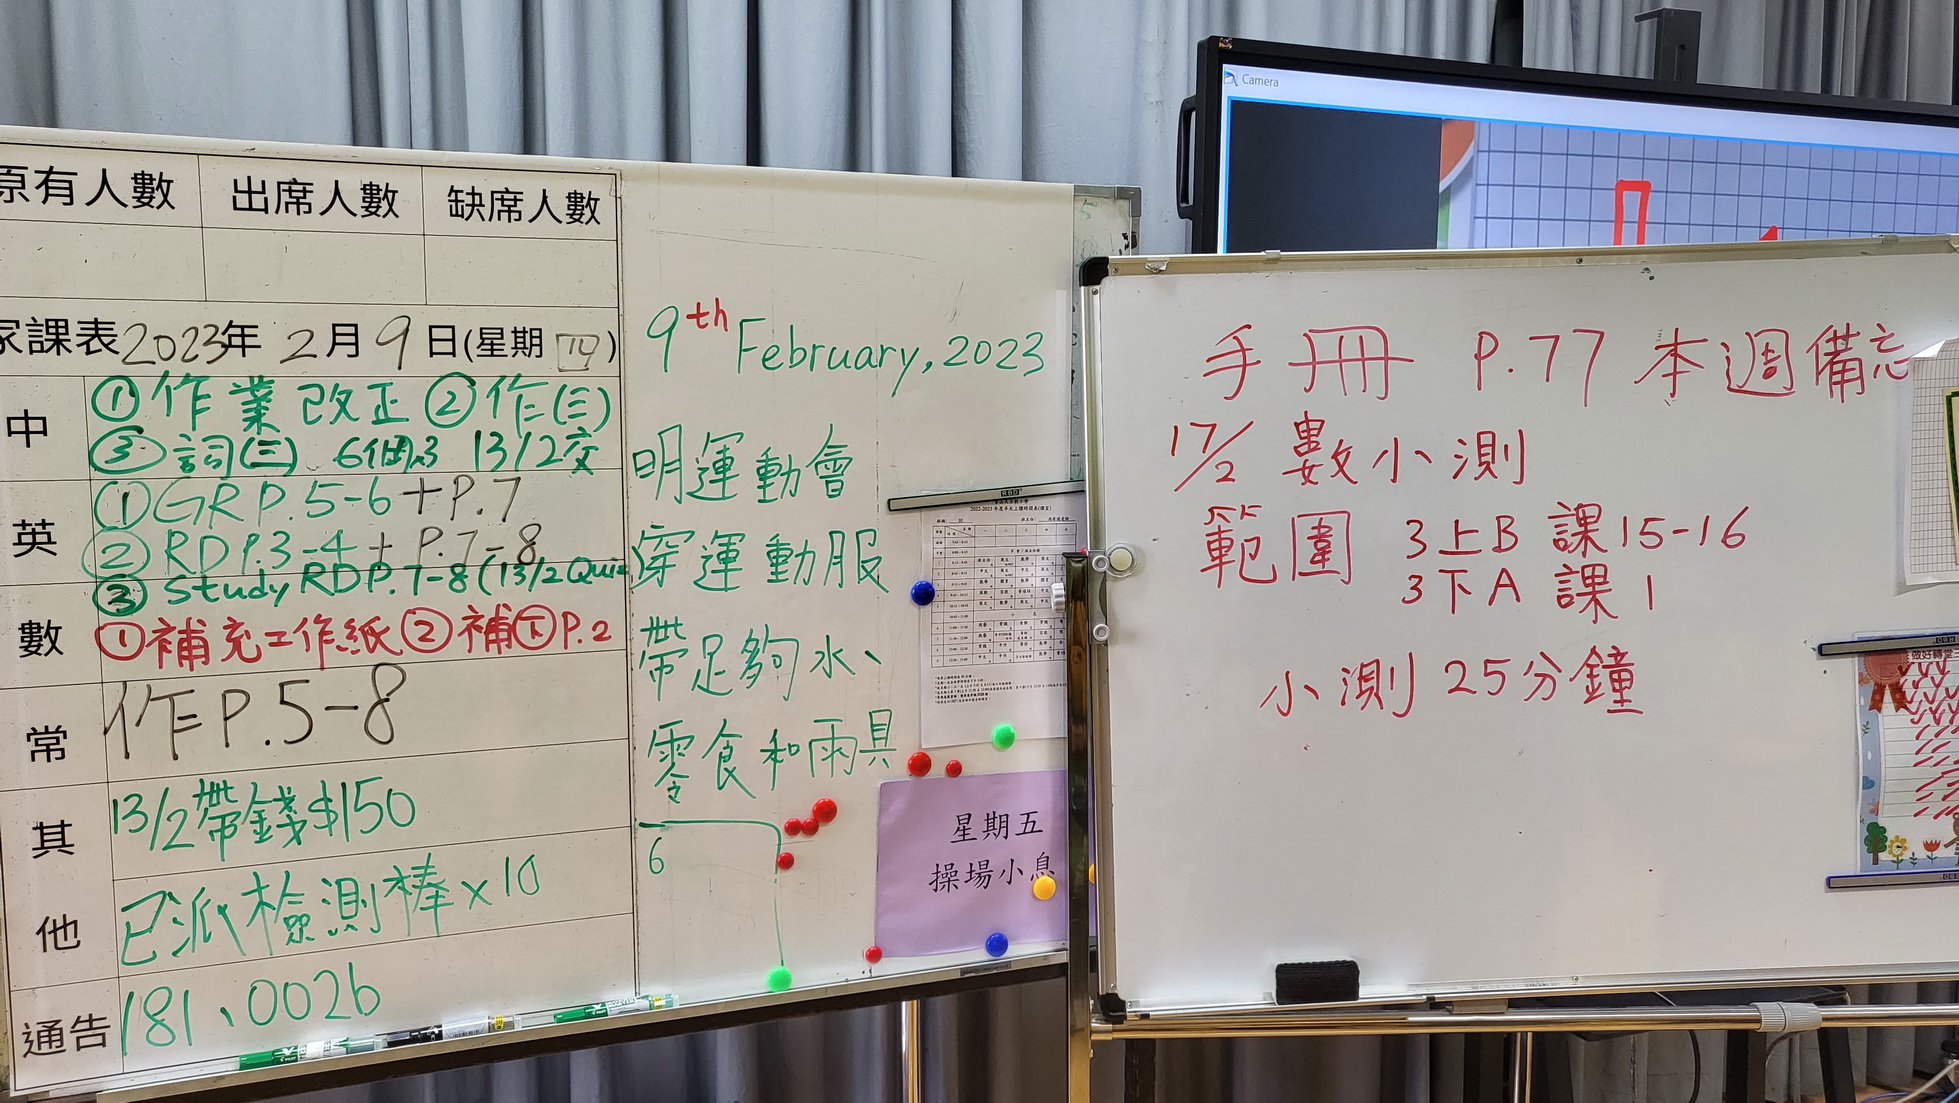 原有人數 出席人數 缺席人數
家課表2023年 2月9日(星期四)
中 ①作業改正②作(三)
③詞(三) 6個x3 13/2交
英 ①GRP.5-6+P.7
②RDP.3-4+P.7-8
③Study RDP.7-8(13/2Quiz
數 ①補充工作紙②補下P.2
常 作P.5-8
其他 13/2帶錢$150
已派檢測棒x10
通告 181、002b
9th February,2023
明運動會
穿運動服
帶足夠水、
零食和雨具
6
2022-2023
星期五
操場小息
Camera
手冊 P.77 本週備忘
17/2 數小測
範圍 3上B 課15-16
3下A 課1
小測25分鐘